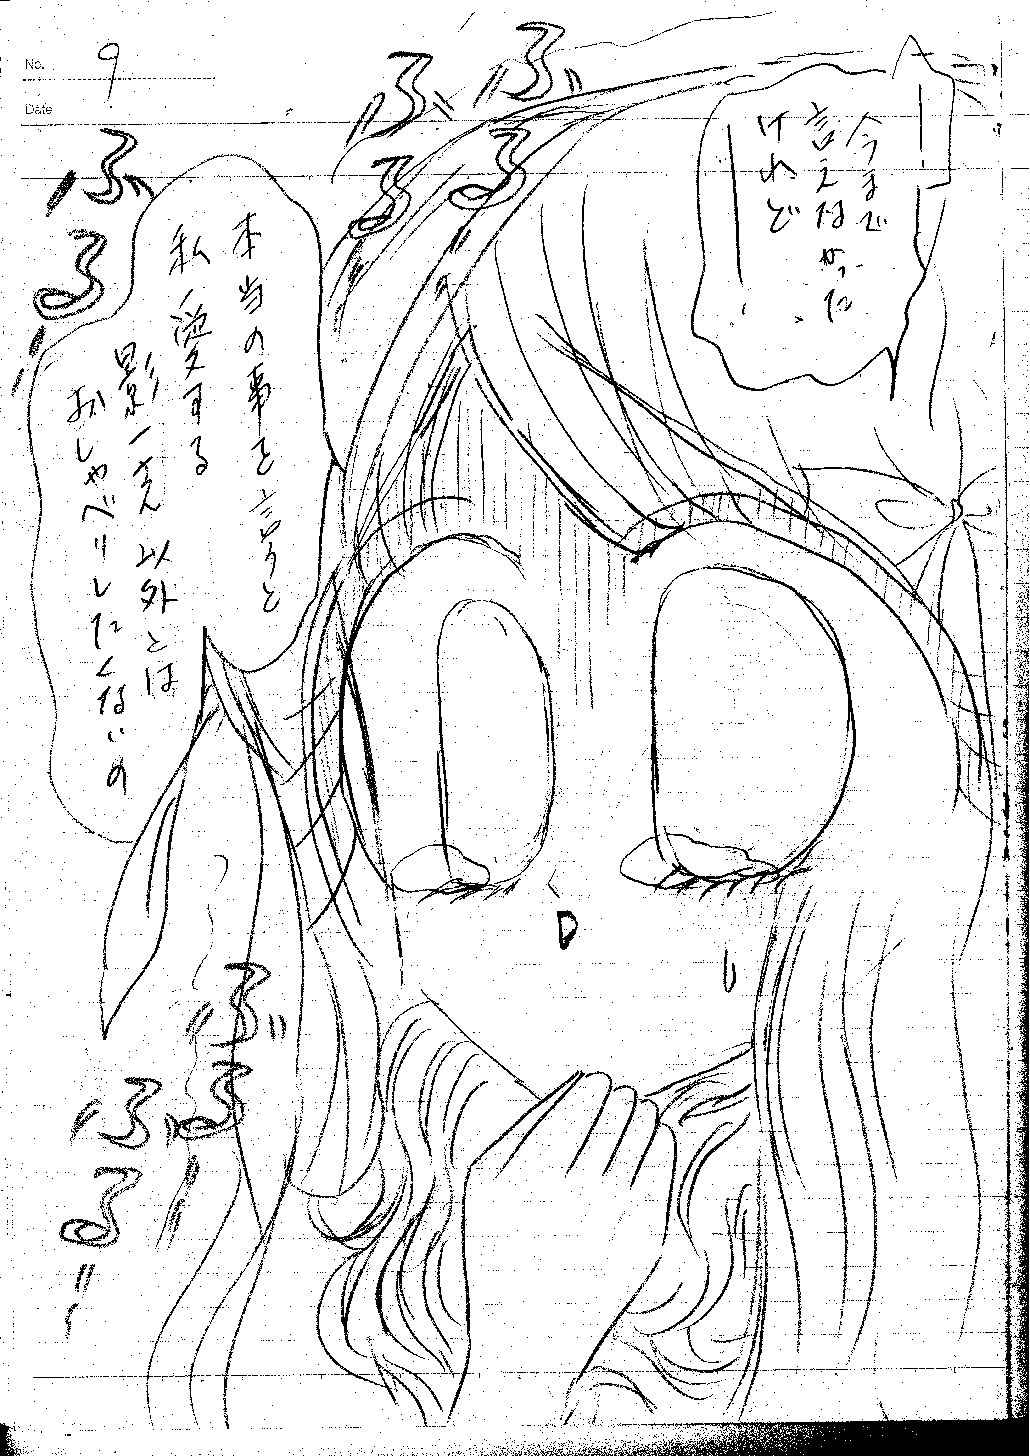 No. 9
Date
今まで
言えなかった
けれど
本当の事を言うと
私、愛する
影一さん以外とは
おしゃべりしたくないの
ぶる
ぶる
ぶる
ぶる
ぶる